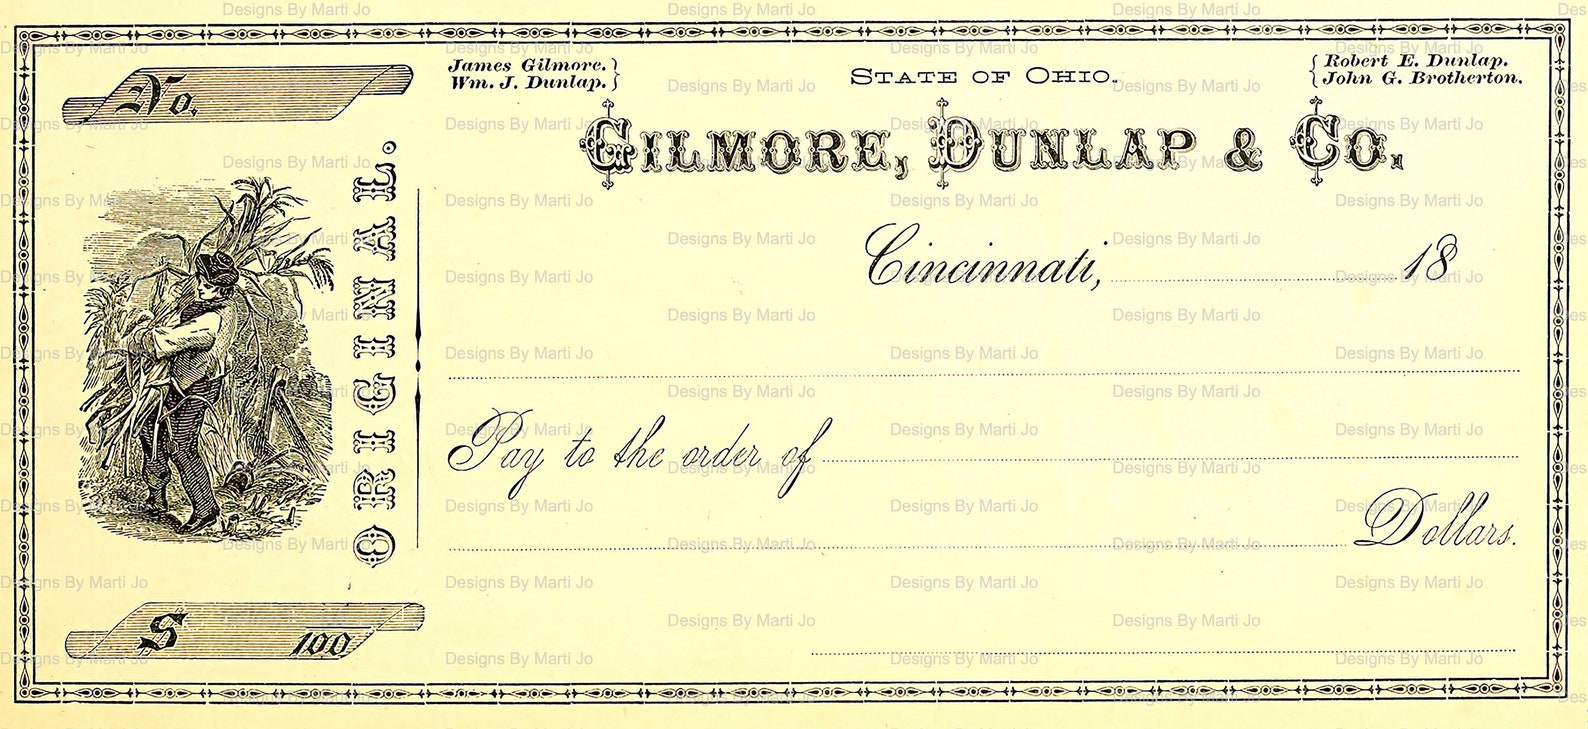 James Gilmore.
Wm. J. Dunlap.
State of Ohio.
Robert E. Dunlap.
John G. Brotherton.
No.
Gilmore, Dunlap & Co.
ORIGINAL.
Cincinnati, 18
Pay to the order of
Dollars.
$ 100
Designs By Marti Jo